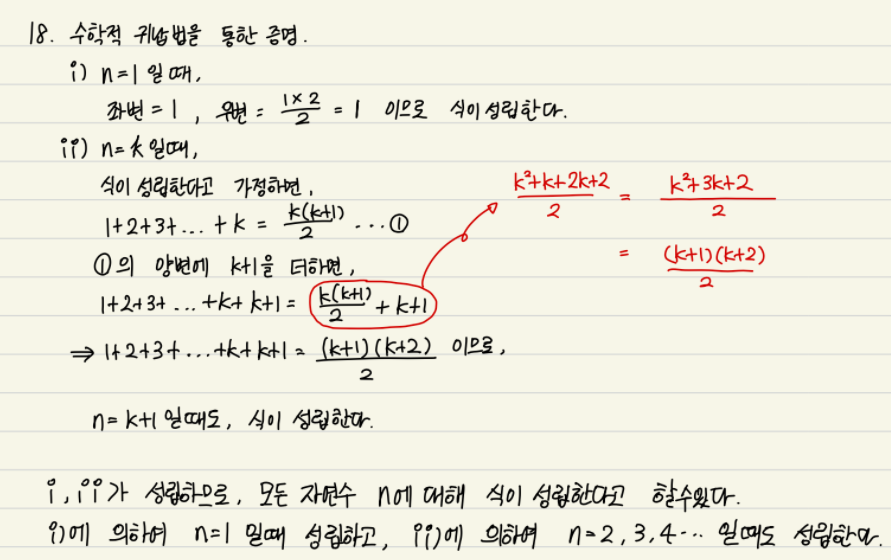 18. 수학적 귀납법을 통한 증명.
i) n=1 일 때,
좌변 = 1 , 우변 = \frac{1×2}{2} = 1 이므로 식이 성립한다.
ii) n=k 일때,
식이 성립한다고 가정하면,
1+2+3+... +k = \frac{k(k+1)}{2} ...①
①의 양변에 k+1을 더하면,
1+2+3+ ... +k+ k+1 = \frac{k(k+1)}{2} + k+1
\frac{k²+k+2k+2}{2} = \frac{k²+3k+2}{2}
= \frac{(k+1)(k+2)}{2}
⇒ 1+2+3+ ... +k+k+1 = \frac{(k+1)(k+2)}{2} 이므로,
n=k+1 일때도, 식이 성립한다.
i, ii가 성립하므로, 모든 자연수 n에 대해 식이 성립한다고 할수있다.
i)에 의하여 n=1 일때 성립하고, ii)에 의하여 n=2,3,4... 일때도 성립한다.